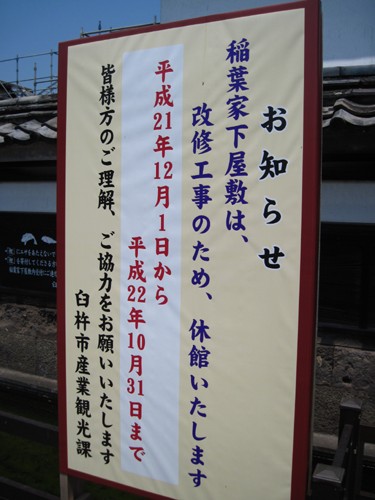 お知らせ
稲葉家下屋敷は、
改修工事のため、休館いたします
平成21年12月1日から
平成22年10月31日まで
皆様方のご理解、ご協力をお願いいたします
臼杵市産業観光課